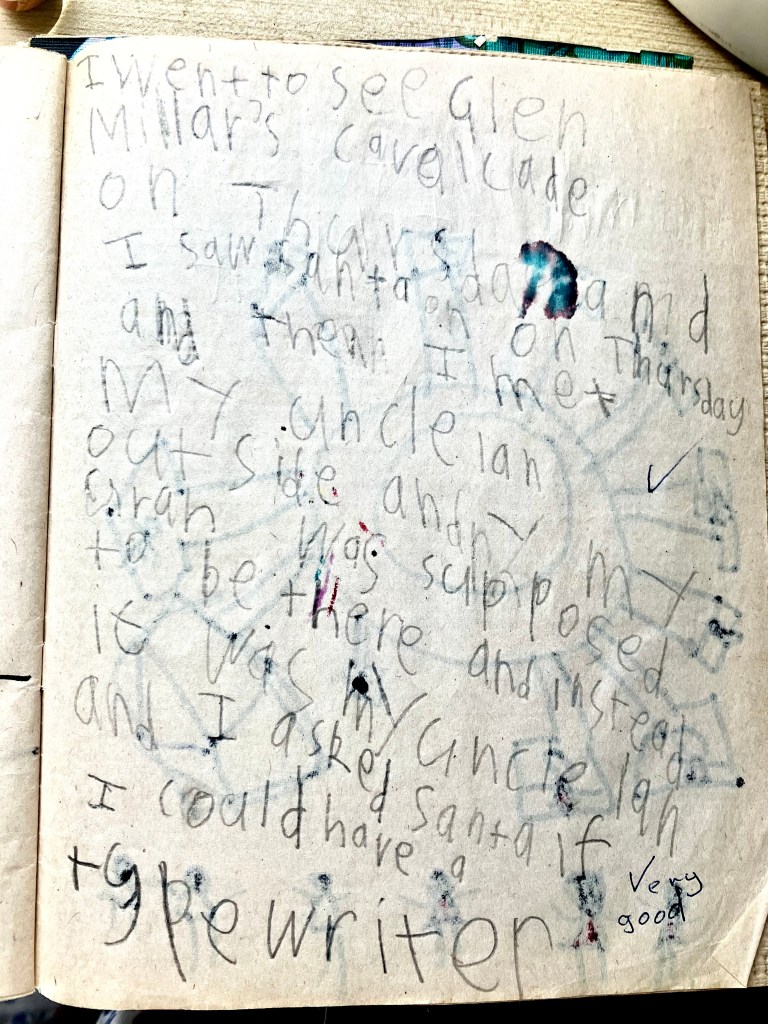 I went to see Glen
Millar's cavalcade
on Thurs
I saw Santa on and
and then I met on Thursday
My uncle Ian
out side and my
Gran was supposed
to be there and instead
it was my uncle Ian
and I asked Santa if
I could have a
typewriter
Very
good